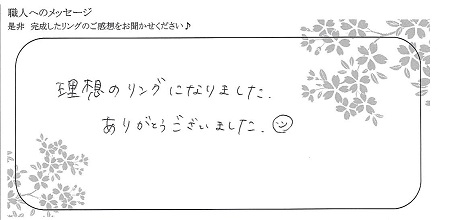 職人へのメッセージ
是非 完成したリングのご感想をお聞かせください♪
理想のリングになりました.
ありがとうございました.